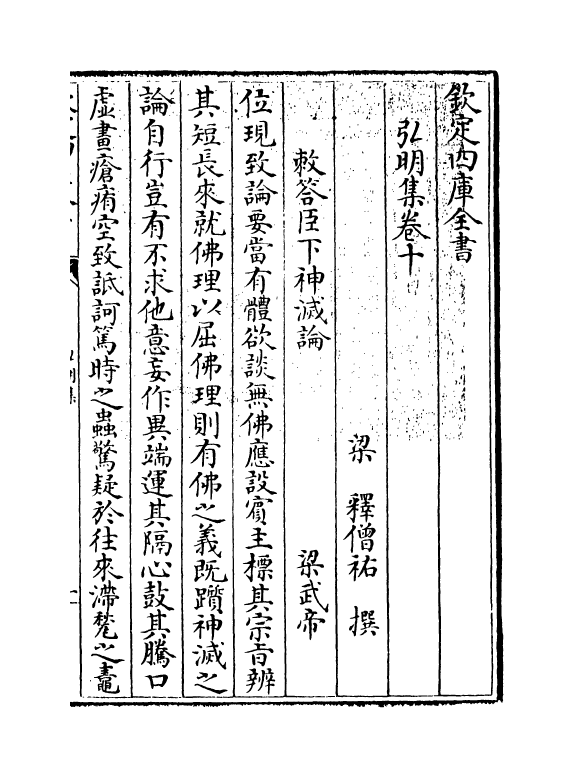 欽定四庫全書
弘明集卷十
梁 釋僧祐 撰
敕答臣下神滅論 梁武帝
位現致論要當有體欲談無佛應設賓主標其宗旨辨
其短長來就佛理以屈佛理則有佛之義既躓神滅之
論自行豈有不求他意妄作異端運其隔心鼓其騰口
虛畫瘡痏空致詆訶篤時之蟲驚疑於往來滯甃之鼃